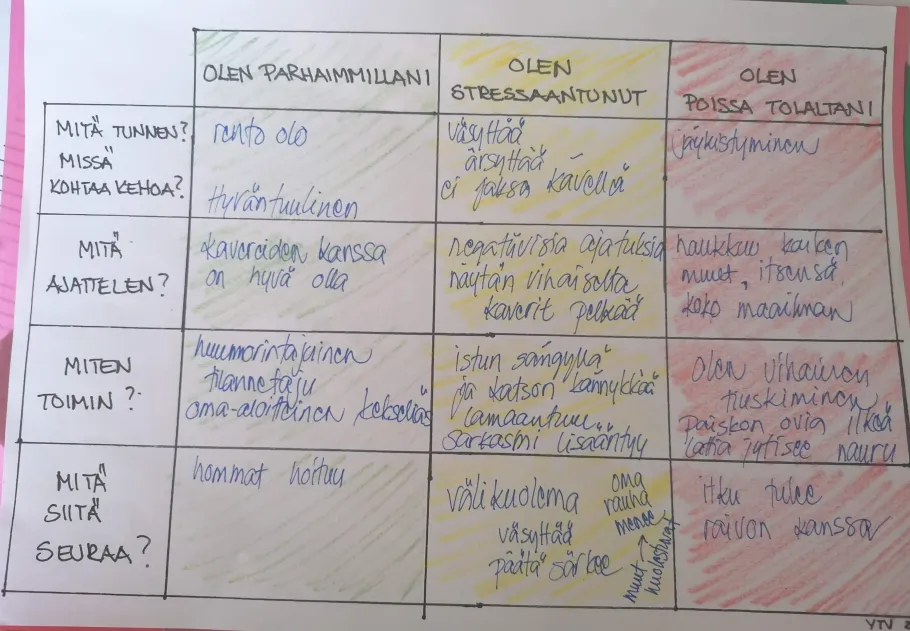 OLEN PARHAIMMILLANI
OLEN
STRESSAANTUNUT
OLEN
POISSA TOLALTANI
MITÄ TUNNEN?
MISSÄ
KOHTAA KEHOA?
rento olo
Hyväntuulinen
väsyttää
ärsyttää
ei jaksa kävellä
jäykistyminen
MITÄ
AJATTELEN?
kavereiden kanssa
on hyvä olla
negatiivisia ajatuksia
näytän vihaiselta
kaverit pelkää
haukkuu kaiken
muut, itsensä,
koko maailman
MITEN
TOIMIN?
huumorintajuinen
tilannetaju
oma-aloitteinen kekseliäs
istun sängyllä
ja katson kännykkää
lamaantuu
sarkasmi lisääntyy
Olen vihainen
tiuskiminen
Paiskon ovia ilkeä
nauru
MITÄ
SIITÄ
SEURAA?
hommat hoituu
välikuolema
väsyttää
päätä särkee
oma
rauha
menee
muut
huolestuvat
itku tulee
raivon kanssa
YTV